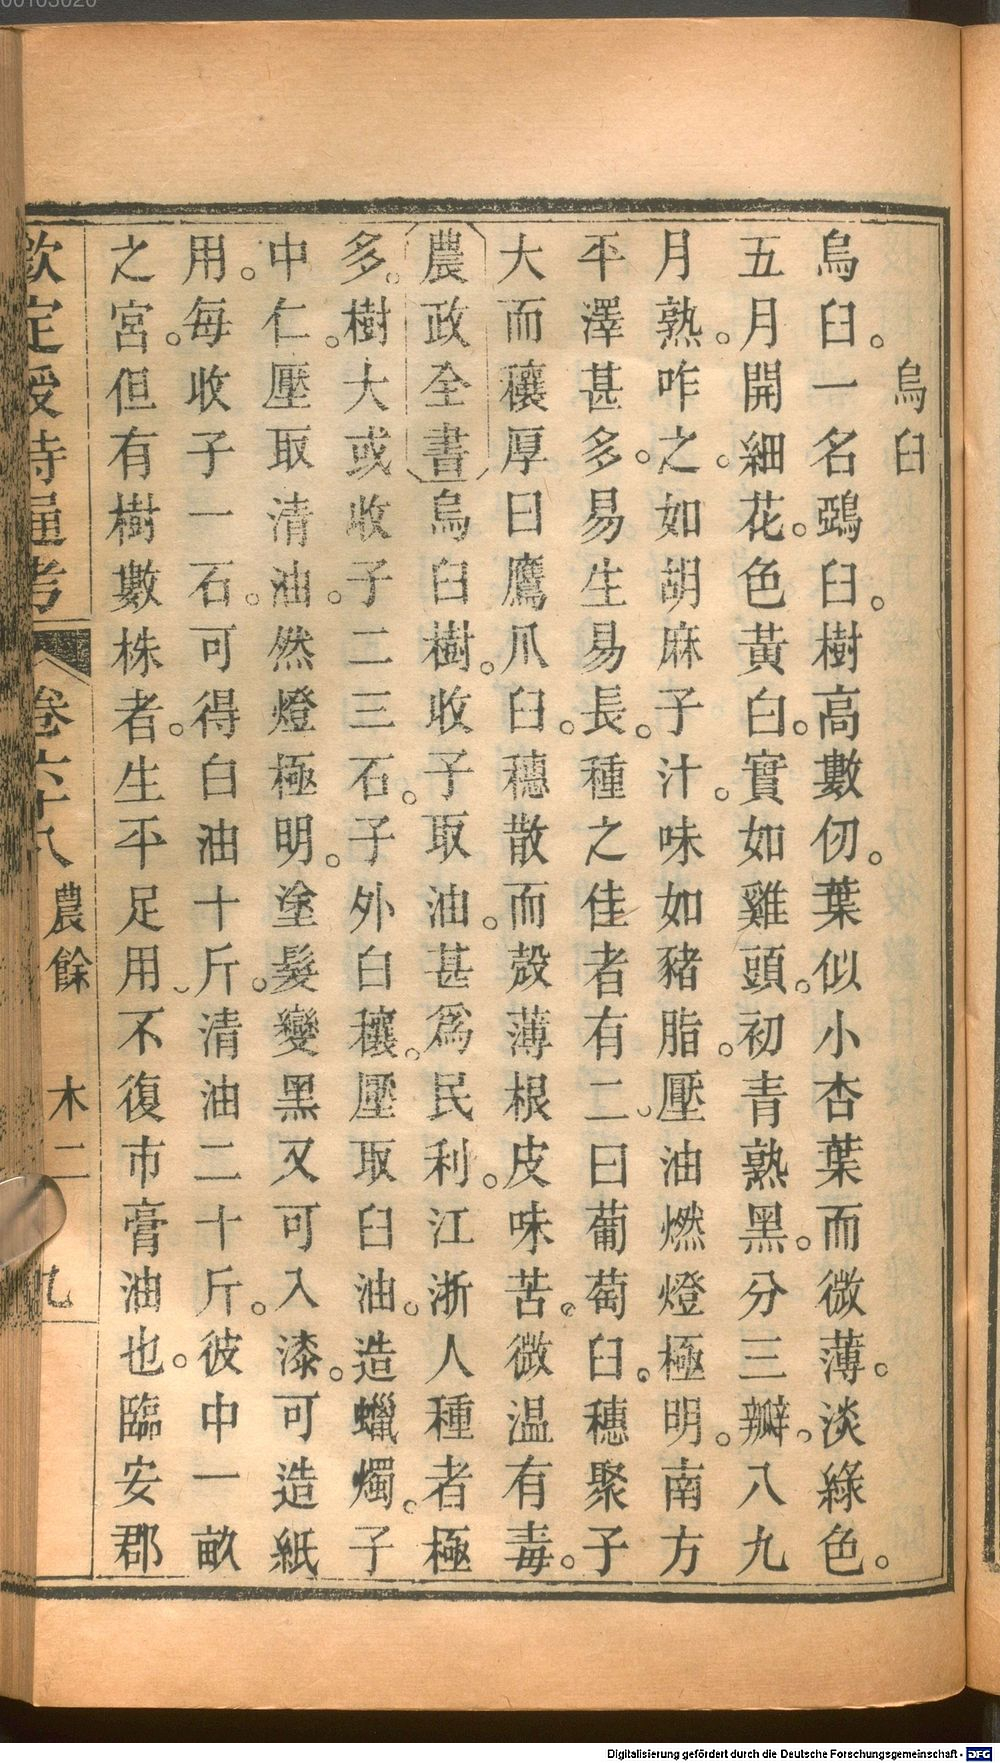 烏臼
烏臼。一名鵶臼。樹高數仞。葉似小杏葉而微薄。淡綠色。
五月開細花。色黃白。實如雞頭。初青熟黑。分三瓣。八九
月熟。咋之。如胡麻子汁。味如豬脂。壓油燃燈極明。南方
平澤甚多。易生易長。種之佳者有二。曰葡萄臼。穗聚子
大而穰厚曰鷹爪臼。穗散而殼薄根皮味苦。微温有毒。
農政全書烏臼樹。收子取油。甚為民利。江浙人種者極
多。樹大或收子二三石。子外白穰。壓取臼油。造蠟燭。子
中仁。壓取清油。然燈極明。塗髮變黑又可入漆。可造紙
用。每收子一石。可得白油十斤。清油二十斤。彼中一畝
之宮。但有樹數株者。生平足用。不復市膏油也。臨安郡
欽定授時通考 卷六十八 農餘 木二 九
00103020
Digitalisierung gefördert durch die Deutsche Forschungsgemeinschaft - DFG